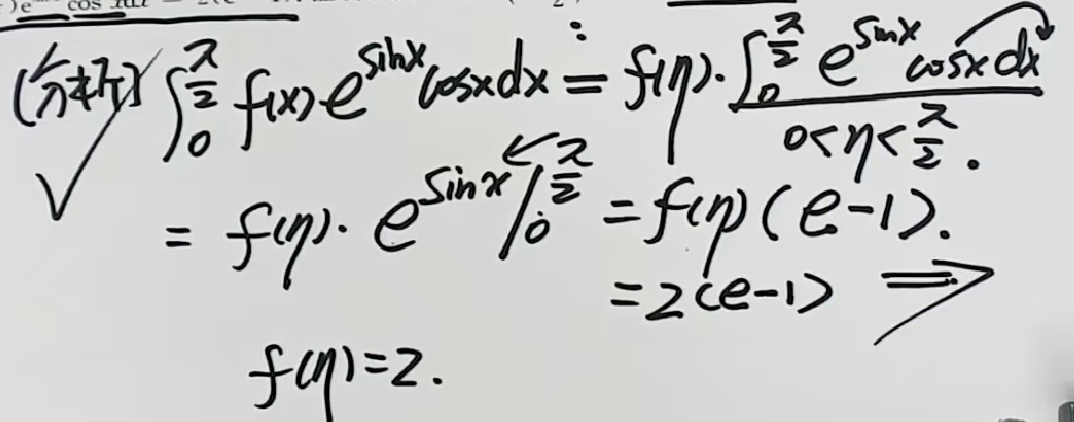 (分析) ∫₀^{π/2} f(x)e^{sinx}cosxdx = f(η)·∫₀^{π/2} e^{sinx}cosxdx
0<η<π/2.
= f(η)·e^{sinx}|₀^{π/2} = f(η)(e-1).
=2(e-1) ⟹
f(η)=2.